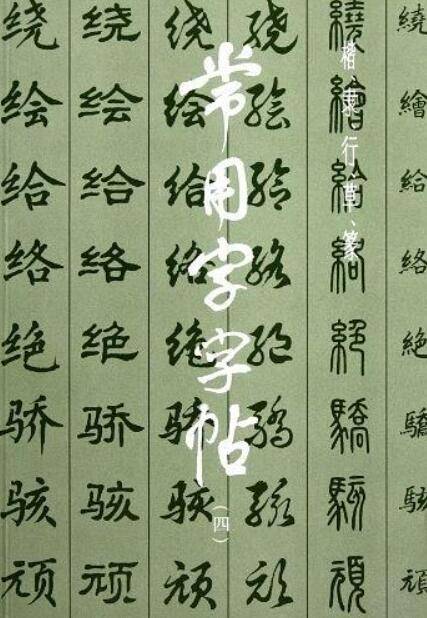 常用字字帖
（四）
楷、隶、行、草、篆
绕绘给络绝骄骇顽
绕绘给络绝骄骇顽
绕绘给络绝骄骇顽
绕绘给络绝骄骇顽
繞繪給絡絕驕駭頑
繞繪給絡絶驕駭頑